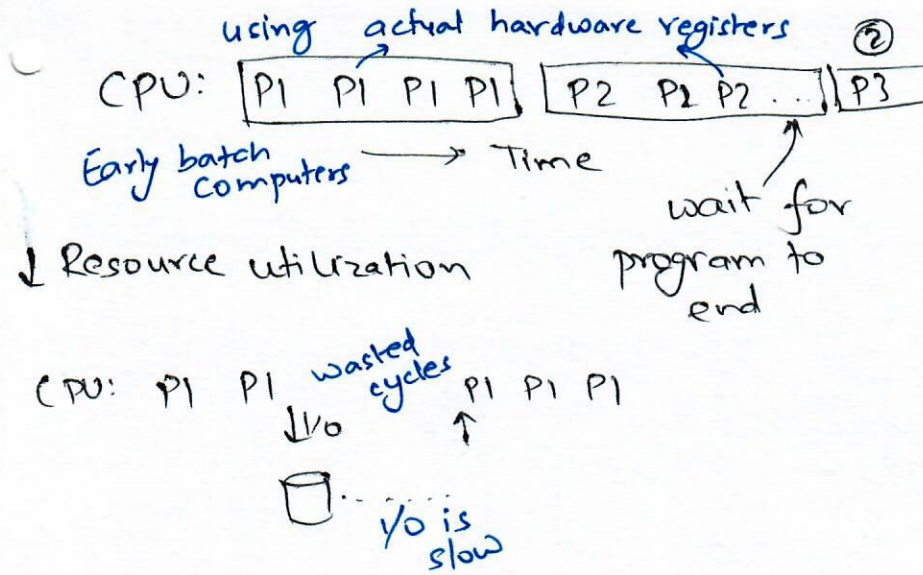 using actual hardware registers
②
CPU: P1 P1 P1 P1 P2 P2 P2 ... P3
Early batch computers → Time
wait for program to end
↓ Resource utilization
CPU: P1 P1 wasted cycles P1 P1 P1
↓I/O ↑
I/O is slow